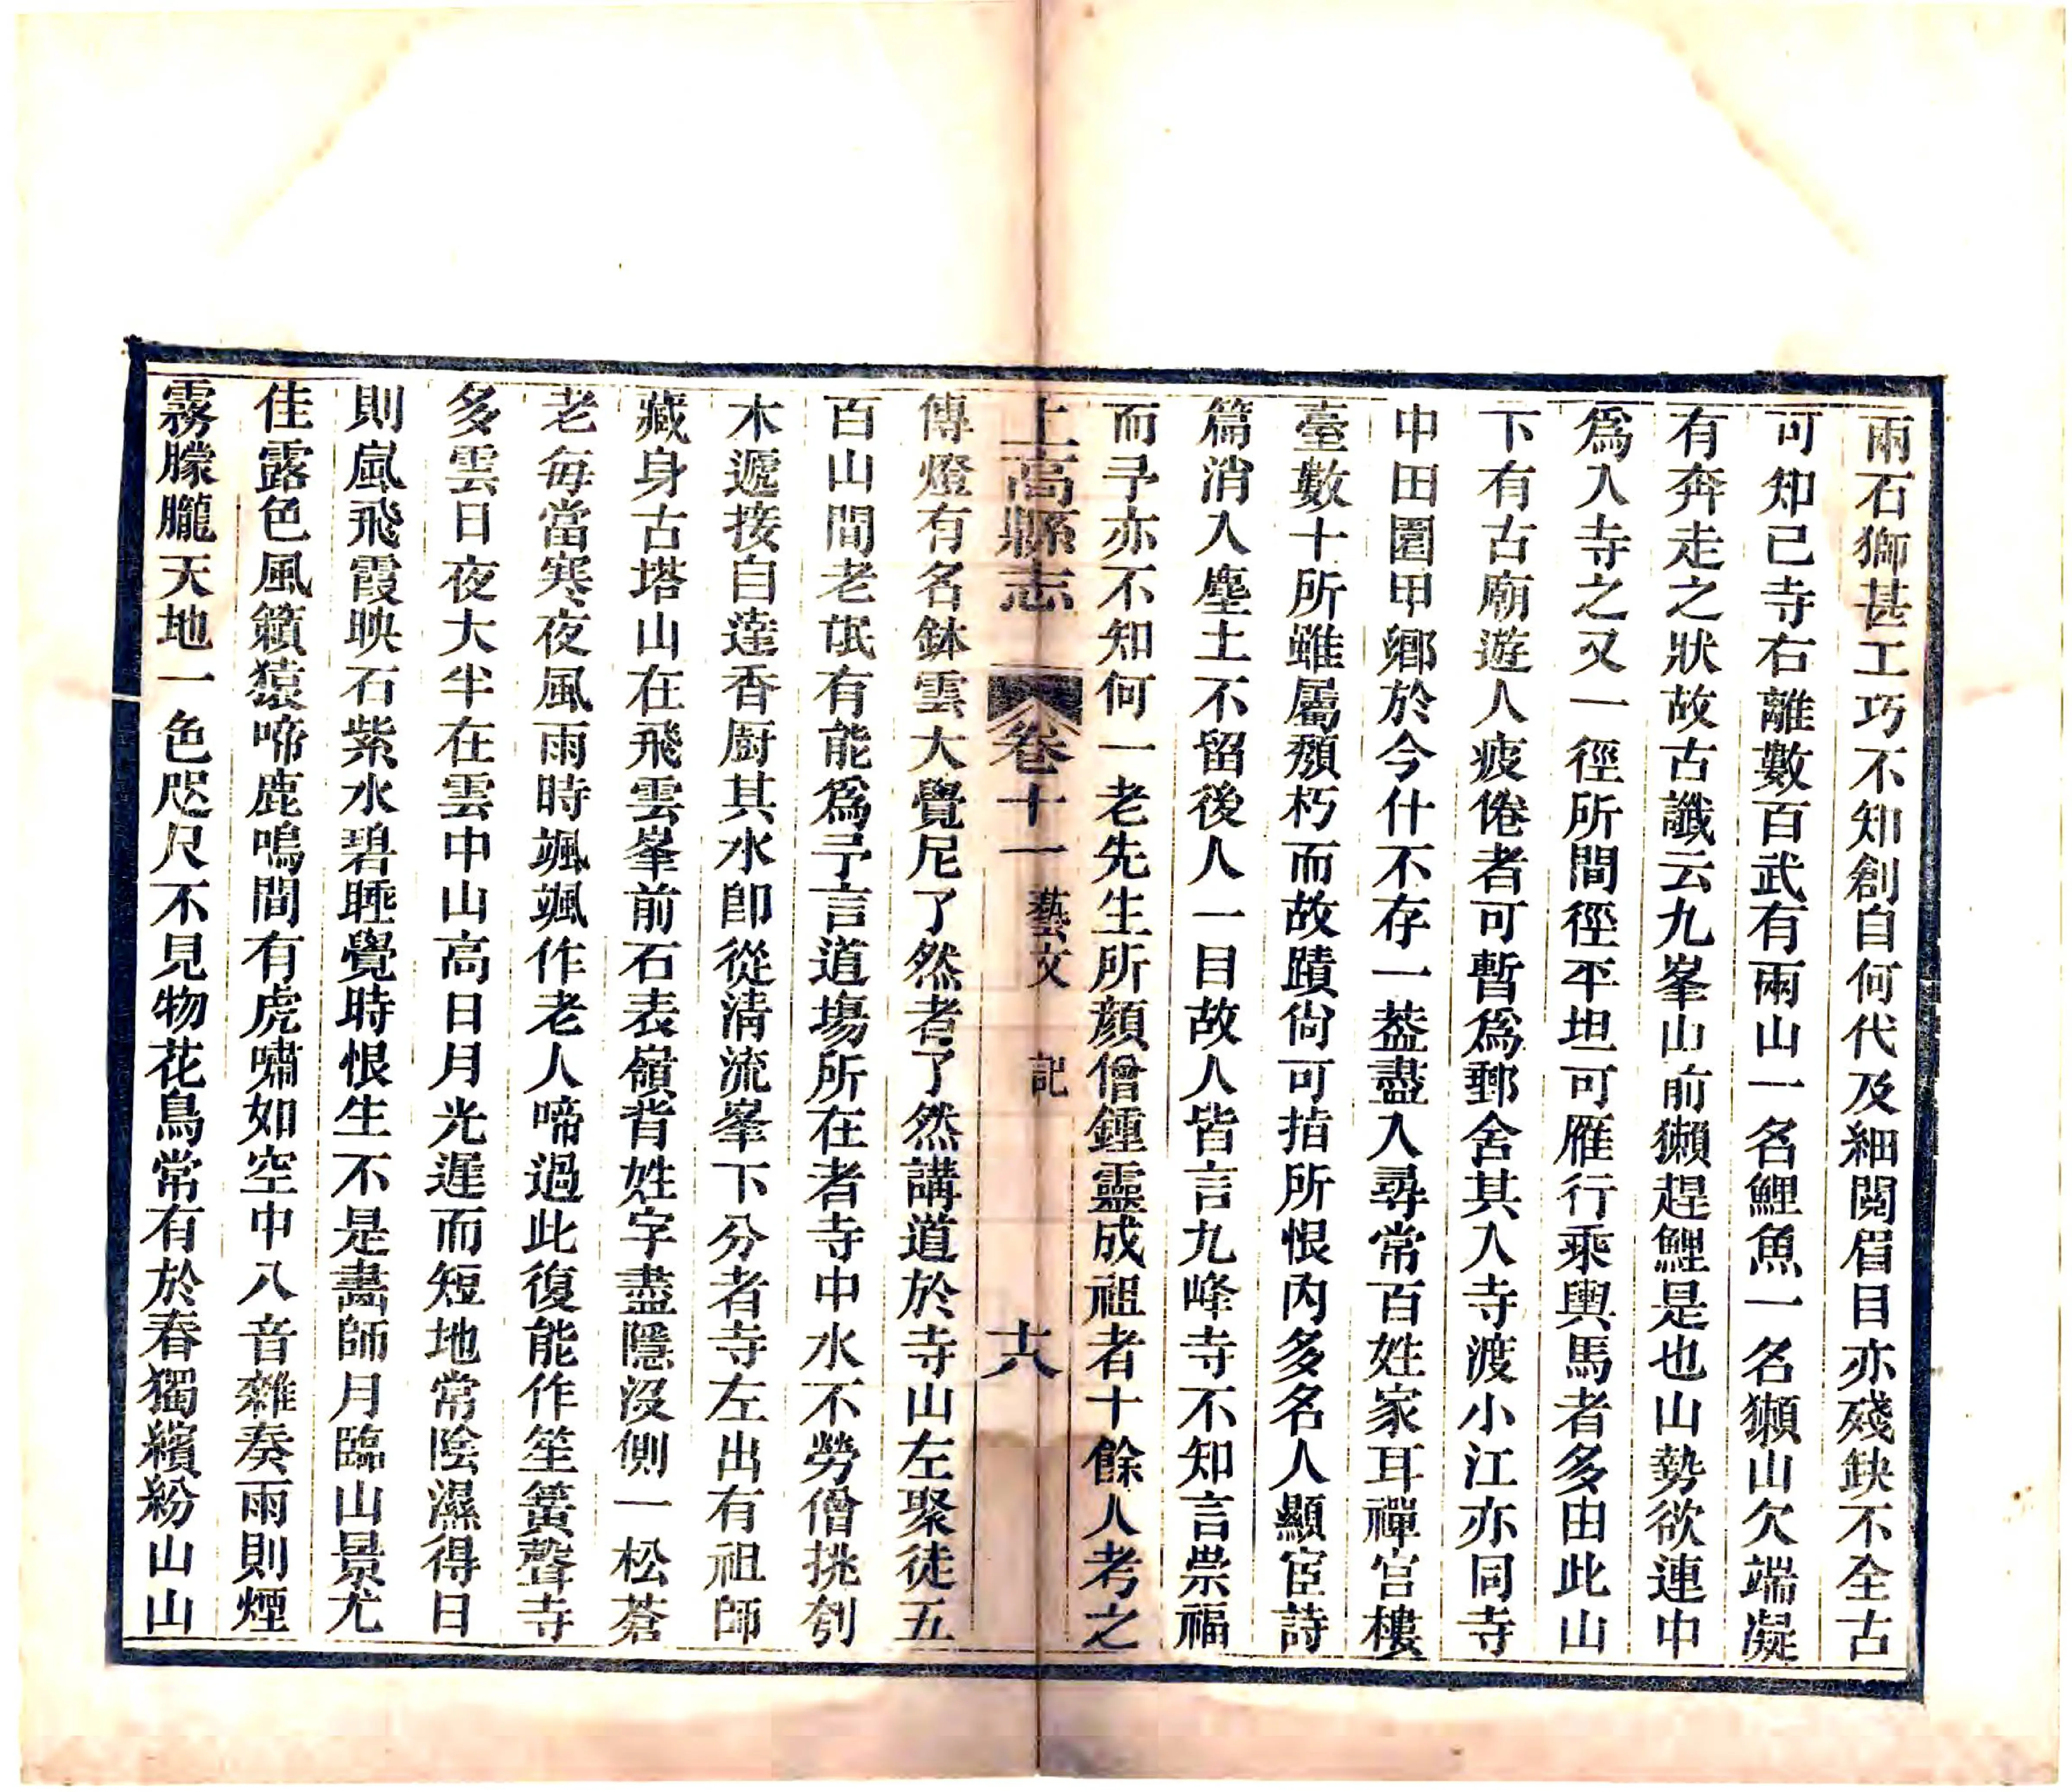 兩石獅甚工巧不知創自何代及細閱眉目亦殘缺不全古
可知已寺右離數百武有兩山一名鯉魚一名獺山欠端凝
有奔走之狀故古讖云九峯山前獺趕鯉是也山勢欲連中
爲入寺之又一徑所間徑平坦可雁行乘輿馬者多由此山
下有古廟遊人疲倦者可暫爲郵舍其入寺渡小江亦同寺
中田園甲鄉於今什不存一葢盡入尋常百姓家耳禪官樓
臺數十所雖屬頹朽而故蹟尙可指所恨內多名人顯宦詩
篇消入塵土不留後人一目故人皆言九峰寺不知言崇福
而予亦不知何一老先生所顏僧鍾靈成祖者十餘人考之
上高縣志 卷十一 藝文 記 十八
傳燈有名鉢雲大覺尼了然者了然講道於寺山左聚徒五
百山間老氓有能爲予言道場所在者寺中水不勞僧挑刳
木遞接自達香厨其水卽從清流峯下分者寺左出有祖師
藏身古塔山在飛雲峯前石表嶺背姓字盡隱沒側一松蒼
老每當寒夜風雨時颯颯作老人啼過此復能作笙簧聲寺
多雲日夜大半在雲中山高日月光遲而短地常陰濕得日
則嵐飛霞映石紫水碧睡覺時恨生不是畵師月臨山景尤
佳露色風籟猿啼鹿鳴間有虎嘯如空中八音雜奏雨則煙
霧朦朧天地一色咫尺不見物花鳥常有於春獨繽紛山山